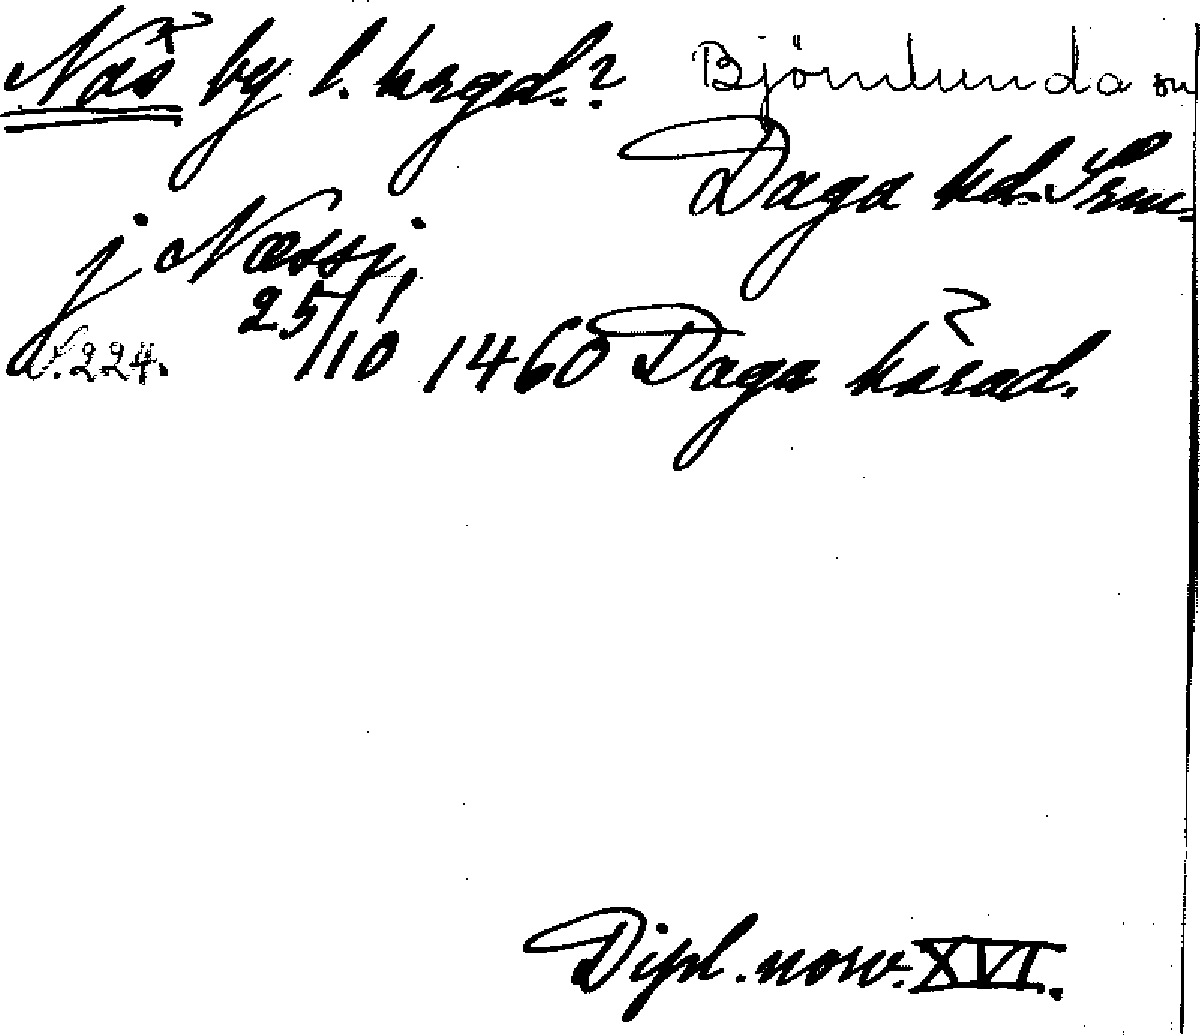 Näs by l. hrgd.? Björnlunda sn
Daga hd. Srm.
j Næssj,
s. 224. 25/10 1460 Daga härad.
Dipl. norv. XVI.